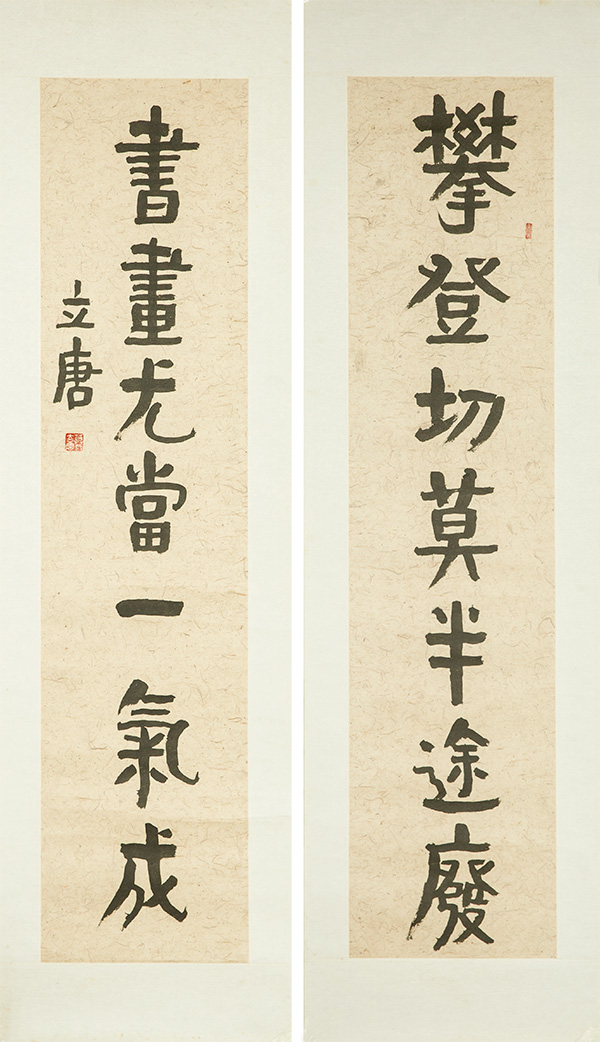 攀登切莫半途廢
書畫尤當一氣成
立唐